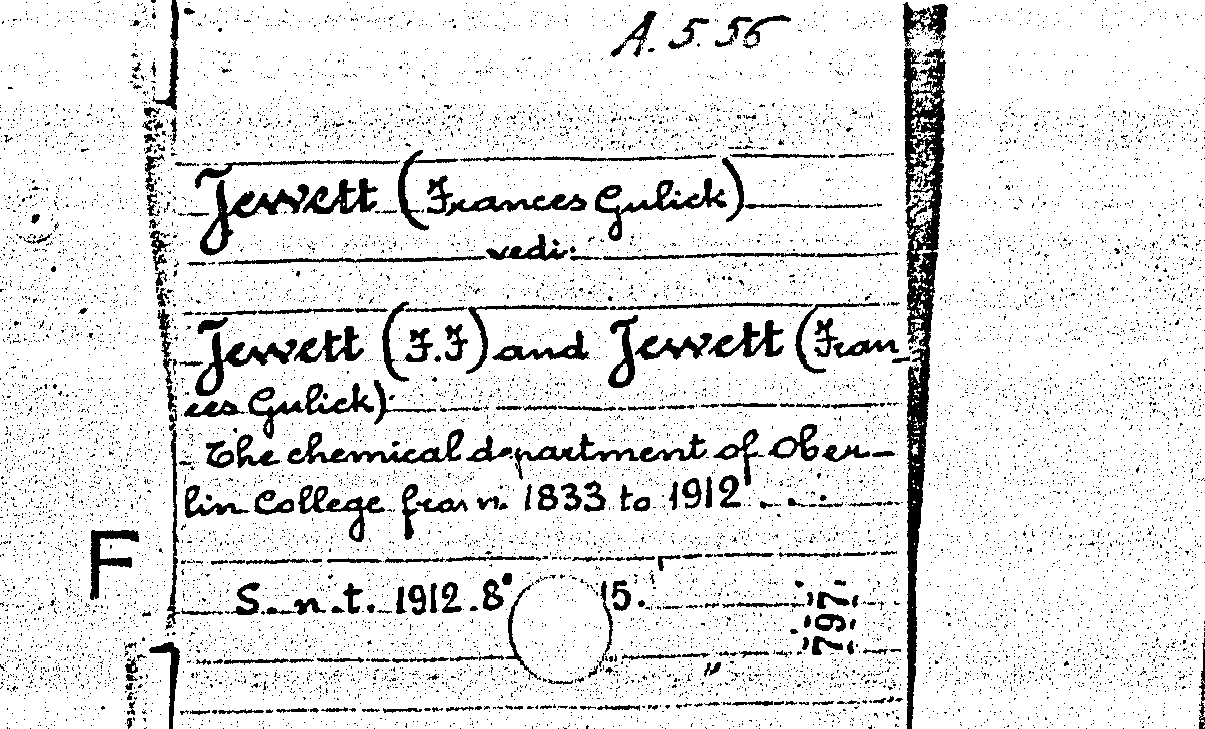 A. 5. 56
Jewett (Frances Gulick)
vedi:
Jewett (F.F) and Jewett (Fran_
ces Gulick)
The chemical department of Ober_
lin College from 1833 to 1912 . . .
F
S. n. t. 1912. 8° 15.
797